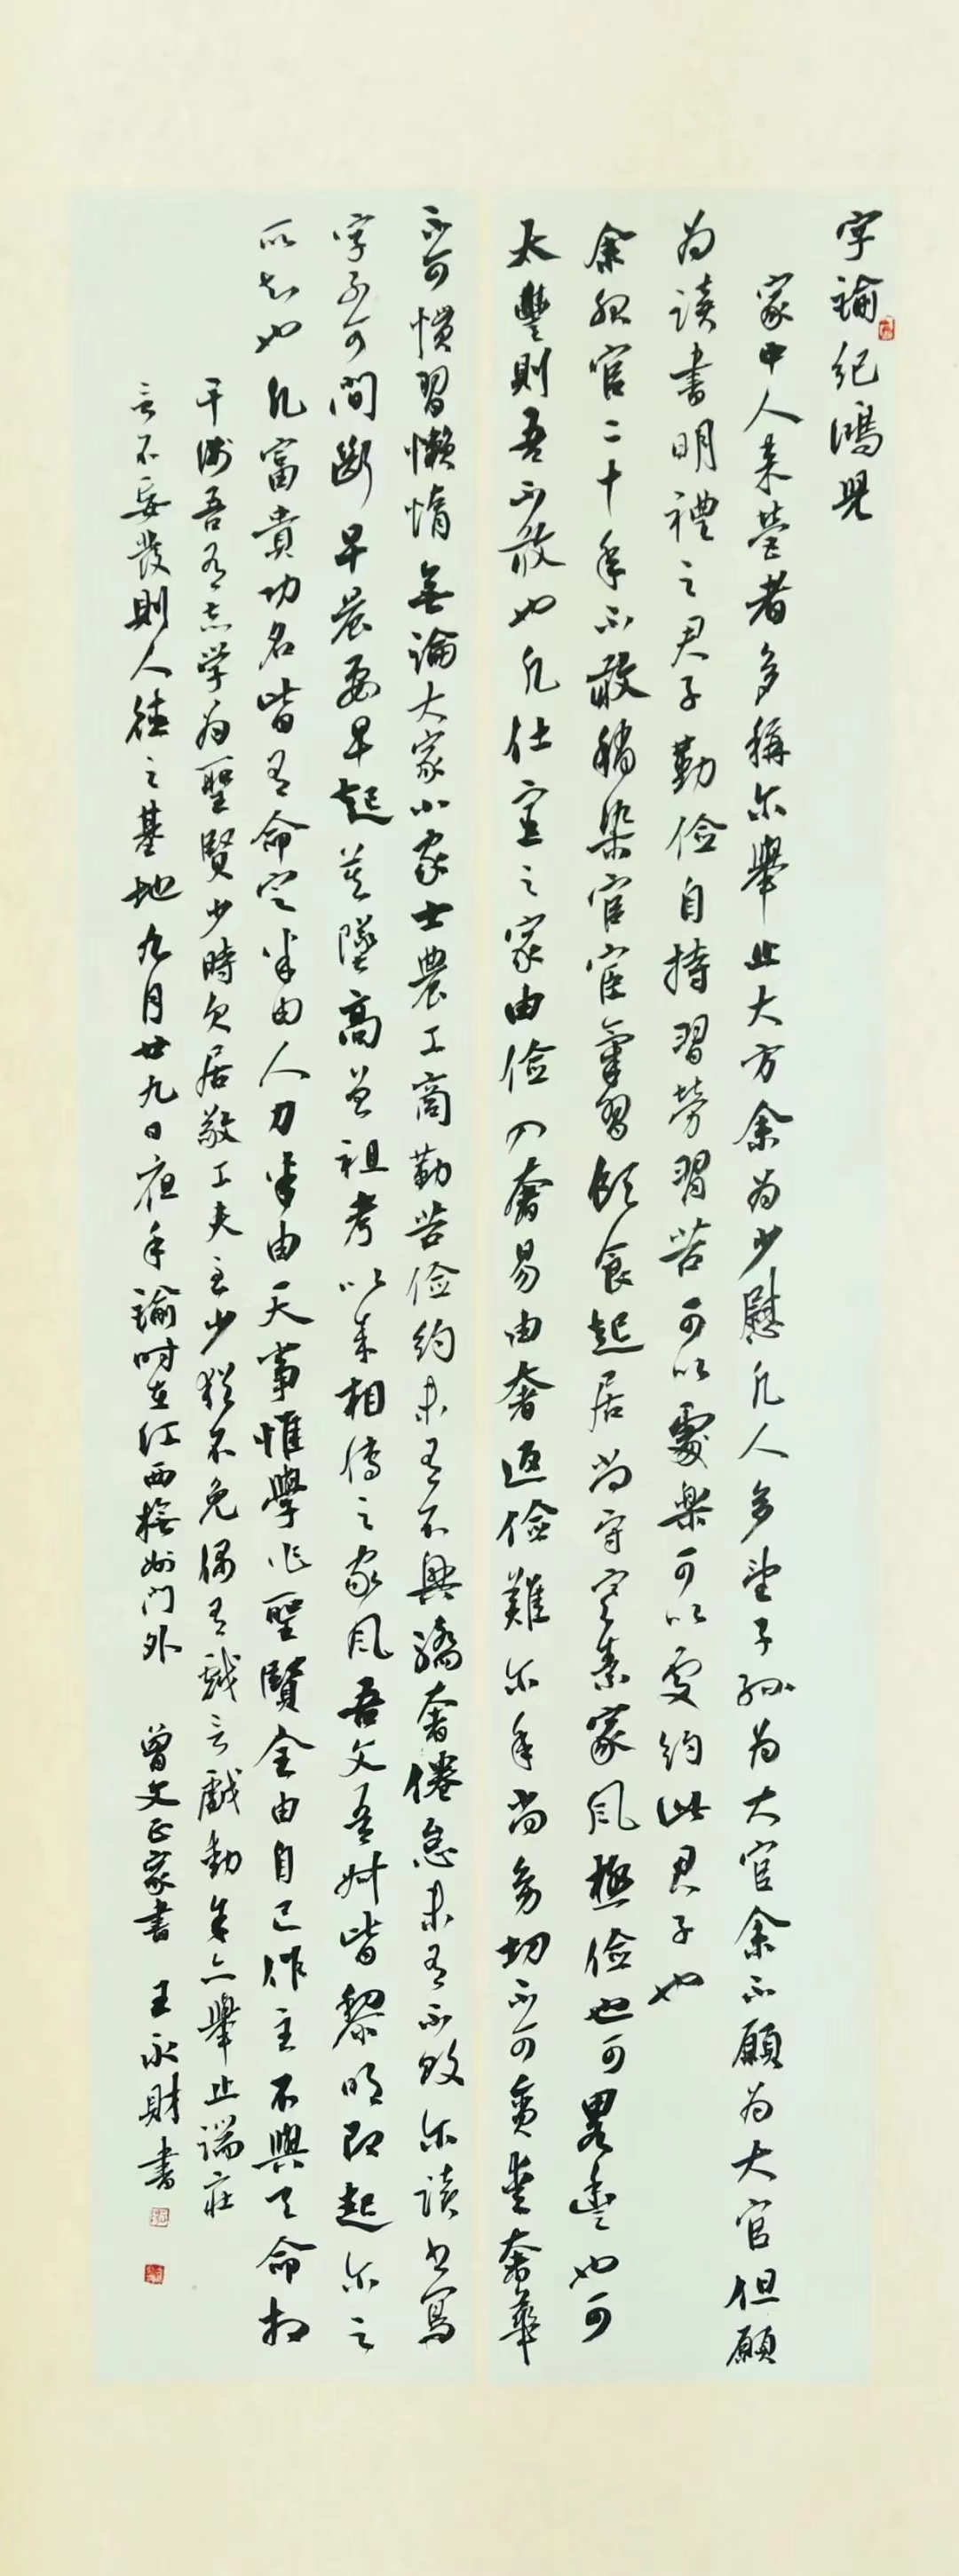 字諭纪鴻兒
家中人来营者多稱尔舉止大方余为少慰凡人多望子孙为大官余不願为大官但願
为读書明禮之君子勤俭自持習劳習苦可以處楽可以处约此君子也
余服官二十年不敢稍染官宦氣習饮食起居尚守寒素家风極俭也可畧豊也可
太豐則吾不敢也凡仕宦之家由俭入奢易由奢返儉難尔年尚幼切不可贪爱奢華
不可惯習懒惰無論大家小家士農工商勤苦俭约未有不興驕奢倦怠未有不败尔读书寫
字不可間斷早晨要早起莫墜高曾祖考以来相傳之家风吾父吾叔皆黎明即起尔之
所知也凡富貴功名皆有命定半由人力半由天事惟學作聖賢全由自己作主不與天命相
干涉吾有志学为聖賢少時欠居敬工夫至少猶不免偶有戏言戲動尔宜舉止端庄
言不妄发則人德之基地九月廿九日夜手諭时在江西撫州门外 曾文正家書 王永財書